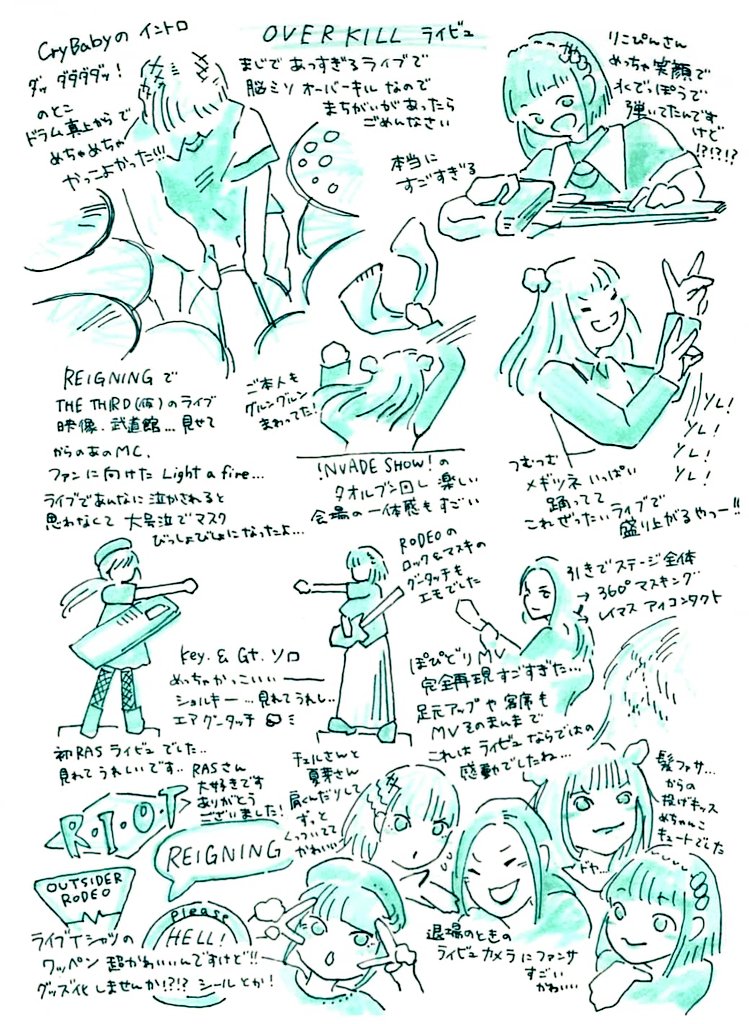 OVERKILL ライビュ
まじで あっすぎるライブで
脳ミソ オーバーキル なので
まちがいがあったら
ごめんなさい
CryBabyの イントロ
ダッ ダダダダッ!
のとこ
ドラム真上からで
めちゃめちゃ
かっこよかった!!!
りこぴんさん
めっちゃ笑顔で
水でっぽうで
弾いてたんです
けど
!?!?!?
本当に
すごすぎる
REIGNING で
THE THIRD(仮)のライブ
映像、武道館...見せて
からのあのMC.
ファンに向けた Light a fire...
ライブであんなに泣かされると
思わなくて 大号泣でマスク
びっしょびしょになったよ...
ご本人も
グルングルン
まわってた!
!NVADE SHOW!の
タオルブン回し 楽しい
会場の一体感もすごい
YL!
YL!
YL!
YL!
つむつむ
メギツネ いっぱい
踊ってて
これぜったいライブで
盛り上がるやっー!!
RODEOの
ロック&マスキの
グータッチも
エモでした
Key. & Gt. ソロ
めっちゃかっこいいー
ショルキー...見れてうれし..
エアグータッチ
引きでステージ全体
→ 360° マスキング
レイマス アイコンタクト
ぽぴどり MV
完全再現すごすぎた...
足元アップや 客席も
MVそのまんまで
これは ライビュならではの
感動でしたね...
初RAS ライビュでした..
見れてうれしいです..
RASさん
大好きです
ありがとう
ございました!
チュルさんと
夏芽さん
肩くんだりして
ずっと
くっついてて
かわいい
髪ファサ...
からの
投げキッス
めちゃんこ
キュートでした
ドヤ...
R・I・O・T
REIGNING
OUTSIDER
RODEO
Please
HELL!
ライブTシャツの
ワッペン 超かわいいんですけど!!
グッズ化しませんか!?!? シールとか!
退場のときの
ライビュカメラにファンサ
すごい
かわいい